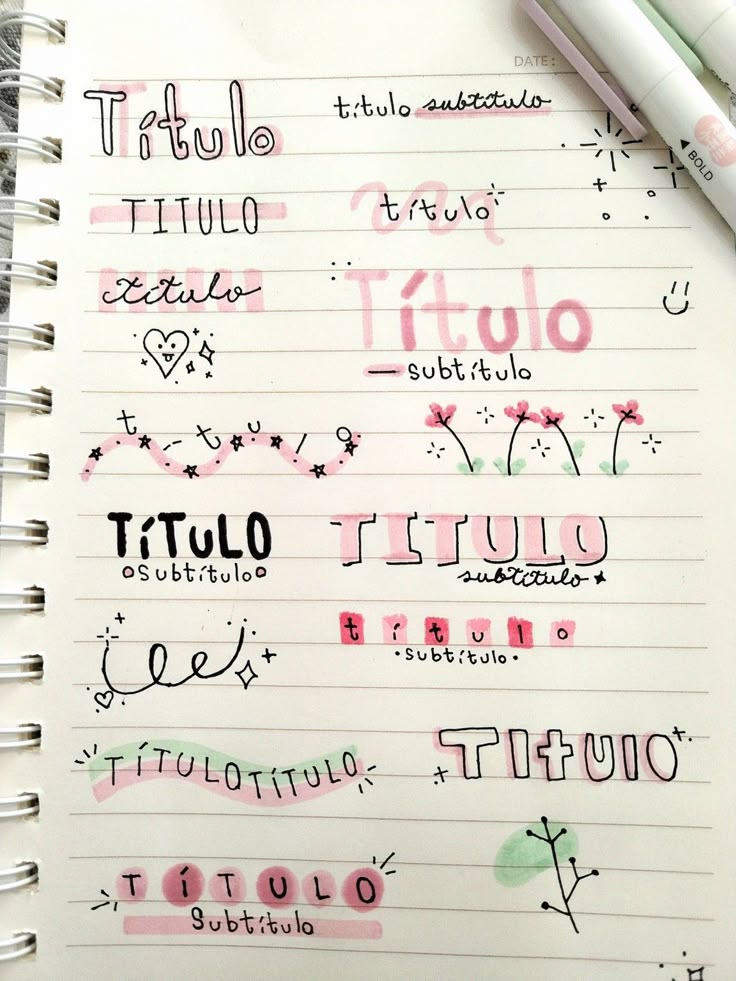 DATE:
Título
título subtítulo
BOLD
TITULO
título
título
Título
subtítulo
título
TíTULO
Subtítulo
TITULO
subtítulo
título
subtítulo
TÍTULOTÍTULO
TItUlO
TÍTULO
Subtítulo